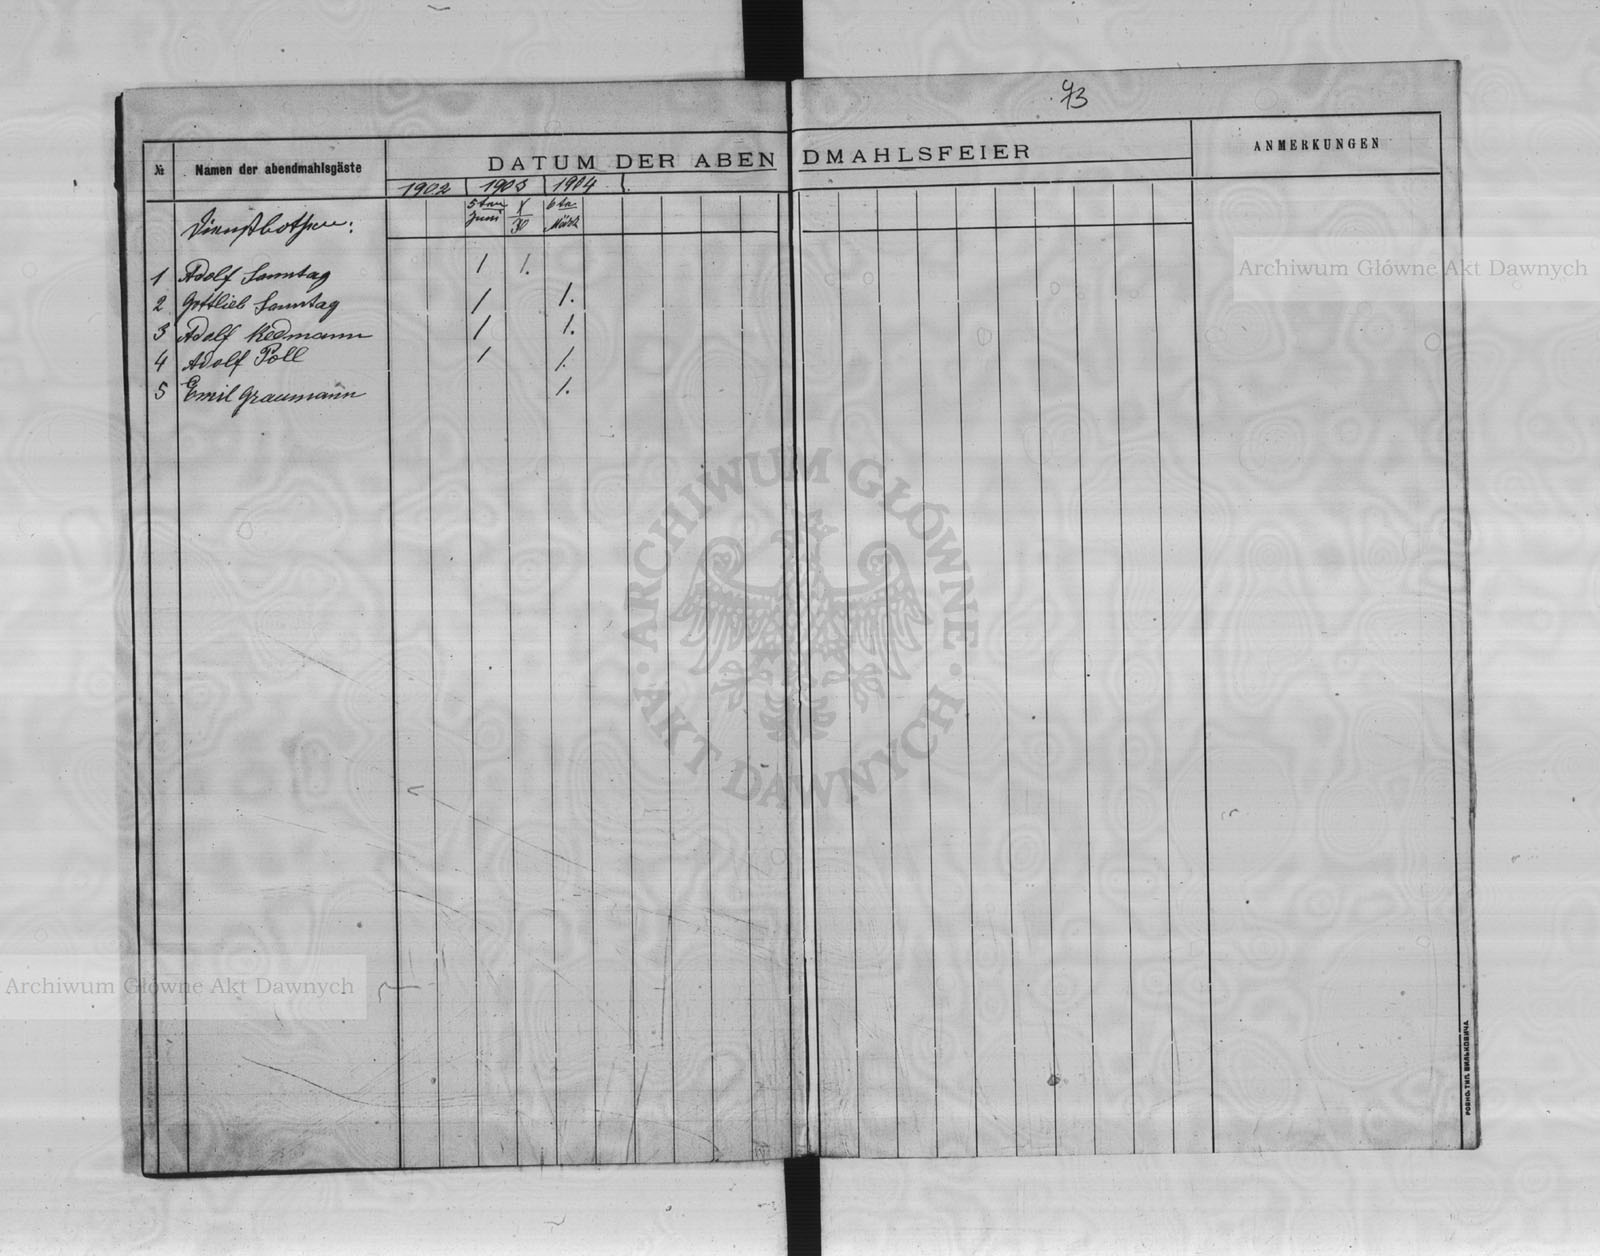 93
№ Namen der abendmahlsgäste DATUM DER ABENDMAHLSFEIER ANMERKUNGEN
1902 1903 1904
Dienstbothen: 5ten Juni X/30 6ten März
1 Adolf Sonntag 1 1.
2 Gottlieb Sonntag 1 1.
3 Adolf Redmann 1 1.
4 Adolf Poll 1 1.
5 Emil Graumann 1.
Archiwum Główne Akt Dawnych
ARCHIWUM GŁÓWNE · AKT DAWNYCH ·
Archiwum Główne Akt Dawnych
РОВНО. ТИП. ВИЛЬКОВИЧА